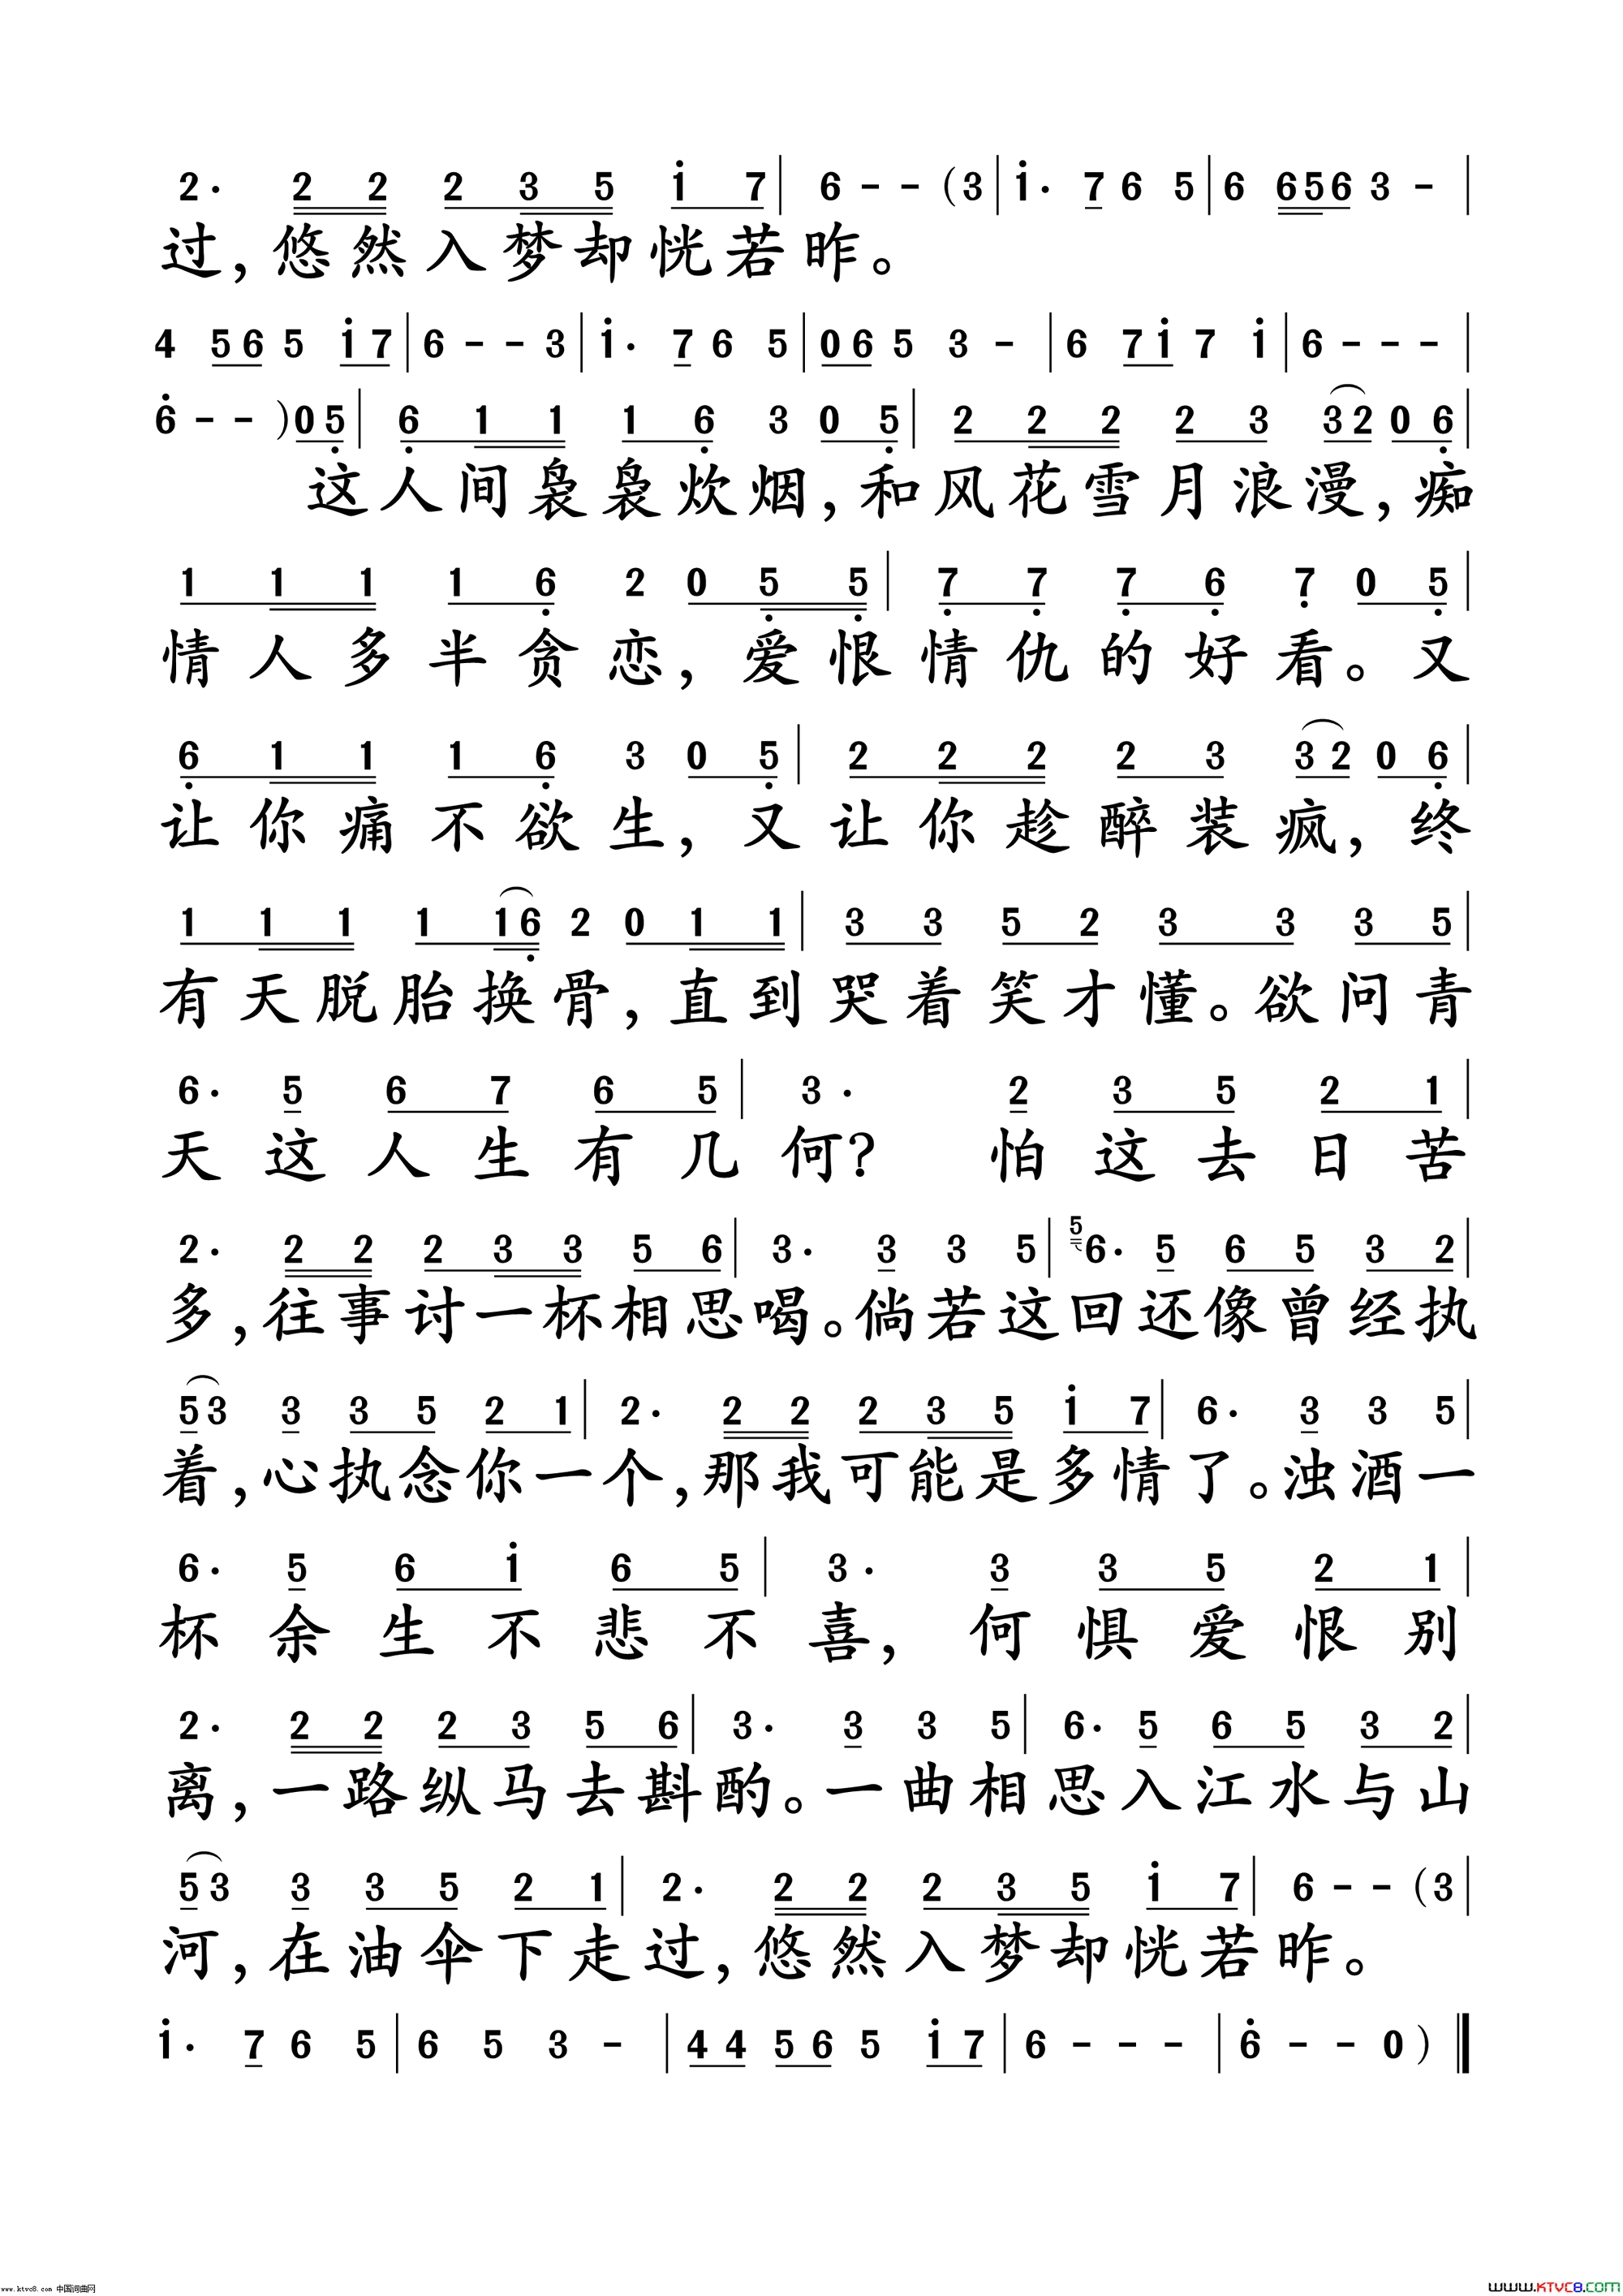 2· 2 2 2 3 5 i 7 | 6 - - (3 | i· 7 6 5 | 6 6 5 6 3 - |
过，悠然入梦却恍若昨。
4 5 6 5 i 7 | 6 - - 3 | i· 7 6 5 | 0 6 5 3 - | 6 7 i 7 i | 6 - - - |
6 - - ) 0 5 | 6 1 1 1 6 3 0 5 | 2 2 2 2 3 3 2 0 6 |
这人间袅袅炊烟，和风花雪月浪漫，痴
1 1 1 1 6 2 0 5 5 | 7 7 7 6 7 0 5 |
情人多半贪恋，爱恨情仇的好看。又
6 1 1 1 6 3 0 5 | 2 2 2 2 3 3 2 0 6 |
让你痛不欲生，又让你趁醉装疯，终
1 1 1 1 1 6 2 0 1 1 | 3 3 5 2 3 3 3 5 |
有天脱胎换骨，直到哭着笑才懂。欲问青
6· 5 6 7 6 5 | 3· 2 3 5 2 1 |
天这人生有几何？ 怕这去日苦
2· 2 2 2 3 3 5 6 | 3· 3 3 5 | 5 6· 5 6 5 3 2 |
多，往事讨一杯相思喝。倘若这回还像曾经执
5 3 3 3 5 2 1 | 2· 2 2 2 3 5 i 7 | 6· 3 3 5 |
着，心执念你一个，那我可能是多情了。浊酒一
6· 5 6 i 6 5 | 3· 3 3 5 2 1 |
杯余生不悲不喜，何惧爱恨别
2· 2 2 2 3 5 6 | 3· 3 3 5 | 6· 5 6 5 3 2 |
离，一路纵马去斟酌。一曲相思入江水与山
5 3 3 3 5 2 1 | 2· 2 2 2 3 5 i 7 | 6 - - (3 |
河，在油伞下走过，悠然入梦却恍若昨。
i· 7 6 5 | 6 5 3 - | 4 4 5 6 5 i 7 | 6 - - - | 6 - - 0 ) ‖
www.ktvc8.com 中国词曲网
WWW.KTVC8.COM